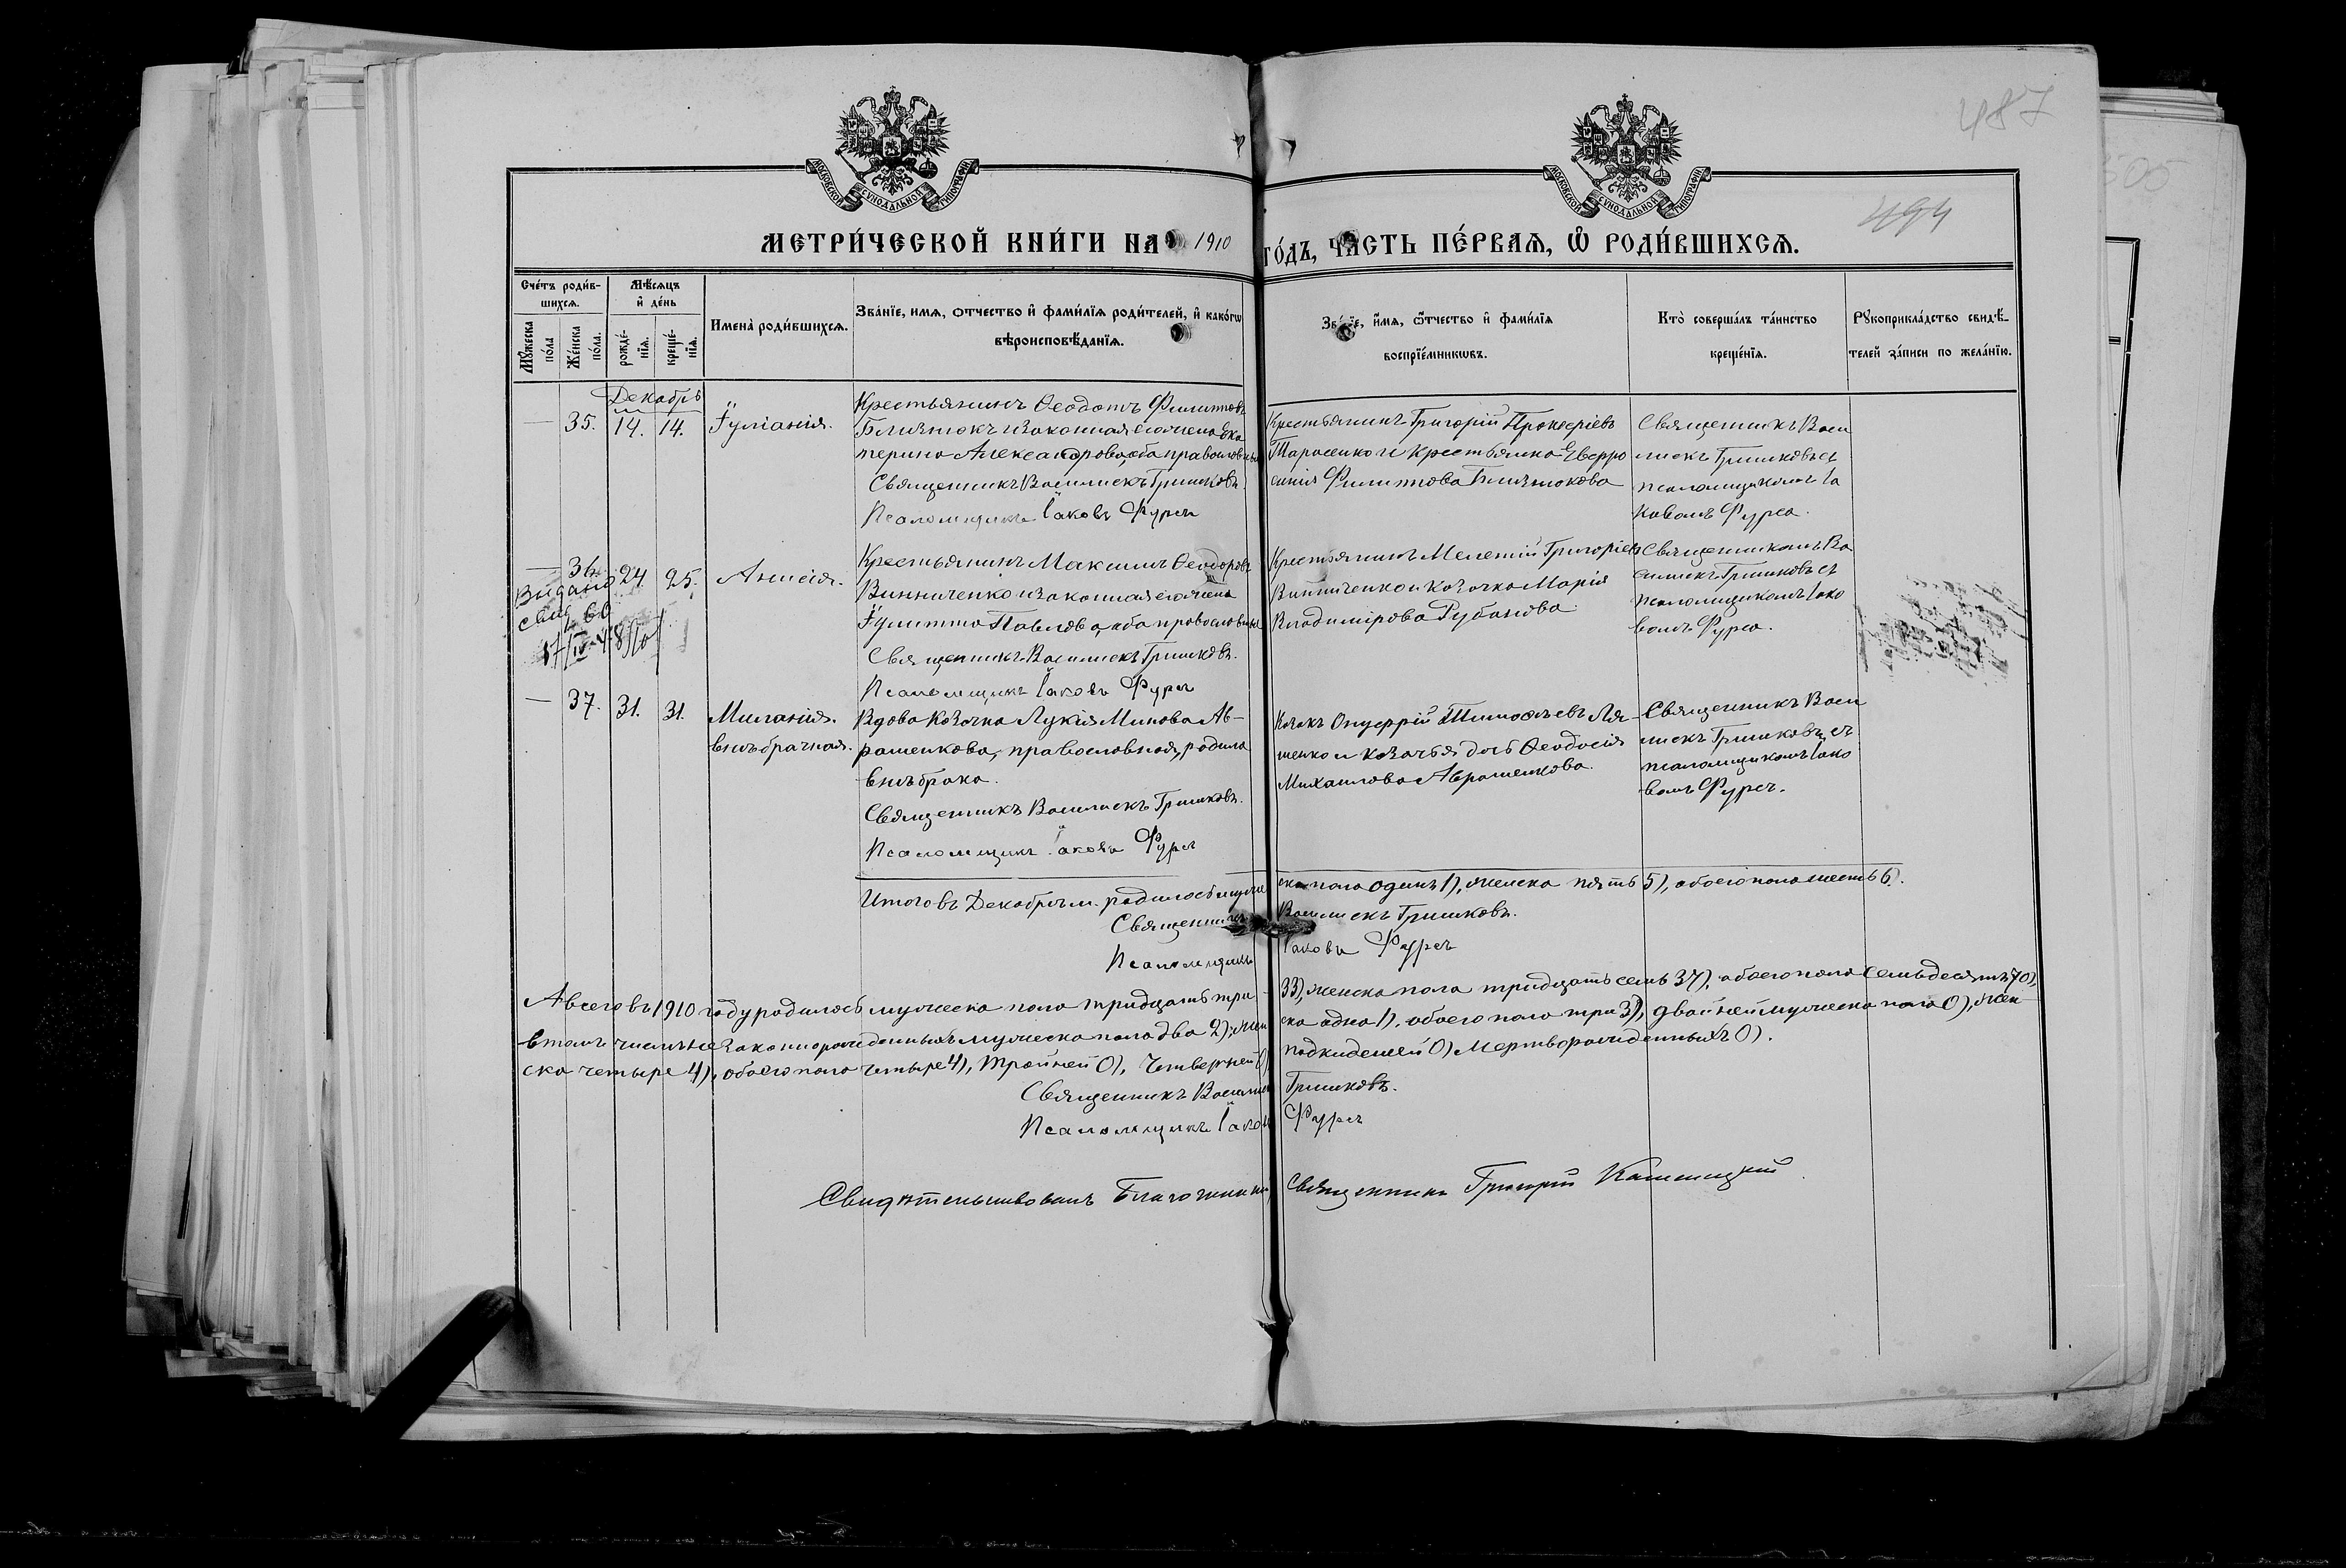 487
494
МОСКОВСКОЙ СѴНОДАЛЬНОЙ ТИПОГРАФІИ
МОСКОВСКОЙ СѴНОДАЛЬНОЙ ТИПОГРАФІИ
МЕТРИ́ЧЕСКОЙ КНИ́ГИ НА 1910 ГО́ДЪ, ЧАСТЬ ПЕ́РВАЯ, Ѡ РОДИ́ВШИХСЯ.
Сче́тъ роди́в-
шихся.
Мꙋ́жеска по́ла
Же́нска по́ла.
Мѣ́сяцъ
и҆ де́нь
рожде́-
нїя.
креще́-
нїя.
Имена̀ роди́вшихся.
Зва́нїе, имя, ѻтчество и҆ фами́лїя роди́телей, и҆ како́гѡ
вѣроисповѣ́данїя.
Зва́нїе, и҆́мя, ѻ҆́тчество и҆ фами́лїя
воспрїе́мникѡвъ.
Кто̀ соверша́лъ та́инство
креще́нїя.
Рꙋкоприкла́дство свидѣ́-
телей за́писи по жела́нїю.
Декабрь
— 35. 14. 14. Іуліанія.
Крестьянинъ Ѳеодотъ Филипповъ
Близнюкъ и законная его жена Ека
терина Александрова, оба православные
Священникъ Василискъ Гришковъ.
Псаломщикъ Іаковъ Фурса
Крестьянинъ Григорій Прокофіевъ
Тарасенко и крестьянка Евфро
синія Филиппова Близнюкова
Священникъ Васи
лискъ Гришковъ съ
псаломщикомъ Іа
ковомъ Фурса.
— 36. 24. 25. Анисія.
Видано
свид. 60
Крестьянинъ Максимъ Ѳеодоровъ
Винниченко и законная его жена
Іулитта Павлова, оба православные
Священникъ Василискъ Гришковъ.
Псаломщикъ Іаковъ Фурса
Крестьянинъ Мелетій Григоріевъ
Винниченко и козачка Марія
Владимірова Рубанова
Священникомъ Ва
силискъ Гришковъ съ
псаломщикомъ Іако
вомъ Фурса.
— 37. 31. 31. Миланія.
внѣбрачная.
Вдова козачка Лукія Минова Ав-
рашенкова, православная, родила
внѣ брака.
Священникъ Василискъ Гришковъ.
Псаломщикъ Іаковъ Фурса
Козакъ Онуфрій Тимоѳеевъ Ля-
шенко и козачья дочь Ѳеодосія
Михаилова Аврашенкова.
Священникъ Васи
лискъ Гришковъ съ
псаломщикомъ Іако
вомъ Фурса.
Итого въ Декабрѣ м. родилось муже ска пола одинъ 1), женска пять 5), обоего пола шесть 6).
Священникъ Василискъ Гришковъ.
Псаломщикъ Іаковъ Фурса
А всего въ 1910 году родилось мужеска пола тридцать три 33), женска пола тридцать семь 37), обоего пола семьдесятъ 70),
въ томъ числѣ незаконнорожденныхъ мужеска пола два 2), жен ска одна 1), обоего пола три 3), двойней мужеска пола 0), жен-
ска четыре 4), обоего пола четыре 4), тройней 0), четверней 0) подкидышей 0) мертворожденныхъ 0).
Священникъ Василискъ Гришковъ.
Псаломщикъ Іаковъ Фурса
Свидѣтельствовалъ Благочинный, Священникъ Григорій Каменецкій